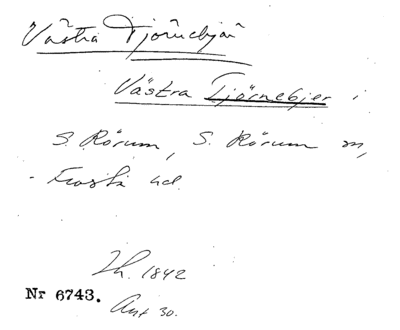 Västra Tjörnebjär
Västra Tjörnebjer i
S. Rörum, S. Rörum sn,
Frosta hd.
Th. 1842
Nr 6743.
Ant 30.